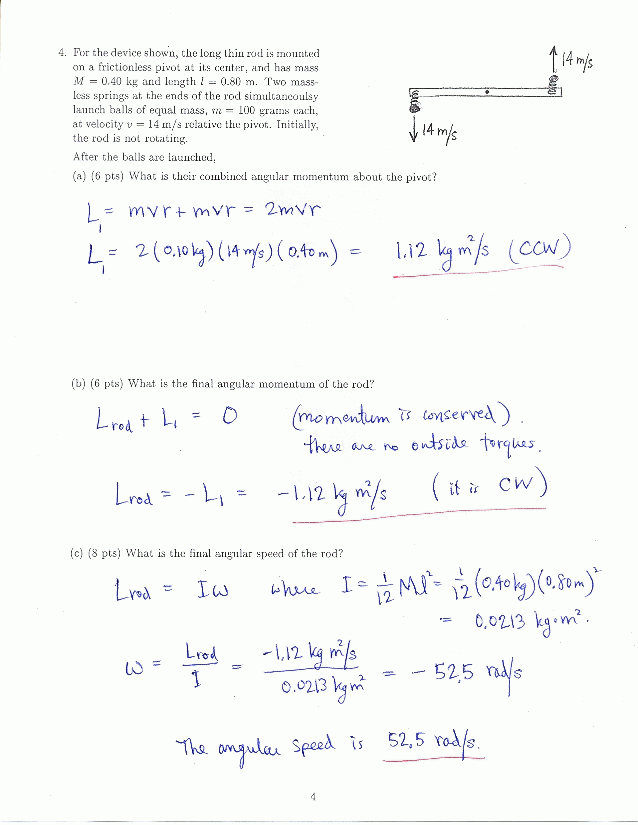 4. For the device shown, the long thin rod is mounted
on a frictionless pivot at its center, and has mass
M = 0.40 kg and length l = 0.80 m. Two mass-
less springs at the ends of the rod simultaneoulsy
launch balls of equal mass, m = 100 grams each,
at velocity v = 14 m/s relative the pivot. Initially,
the rod is not rotating.
14 m/s
14 m/s
After the balls are launched,
(a) (6 pts) What is their combined angular momentum about the pivot?
L₁ = mvr + mvr = 2mvr
L₁ = 2(0.10 kg)(14 m/s)(0.40 m) = 1.12 kg m²/s (CCW)
(b) (6 pts) What is the final angular momentum of the rod?
Lrod + L₁ = 0 (momentum is conserved).
there are no outside torques.
Lrod = - L₁ = -1.12 kg m²/s (it is CW)
(c) (8 pts) What is the final angular speed of the rod?
Lrod = Iω where I = 1/12 Ml² = 1/12 (0.40 kg)(0.80 m)²
= 0.0213 kg·m².
ω = Lrod / I = -1.12 kg m²/s / 0.0213 kg m² = - 52.5 rad/s
The angular speed is 52.5 rad/s.
4